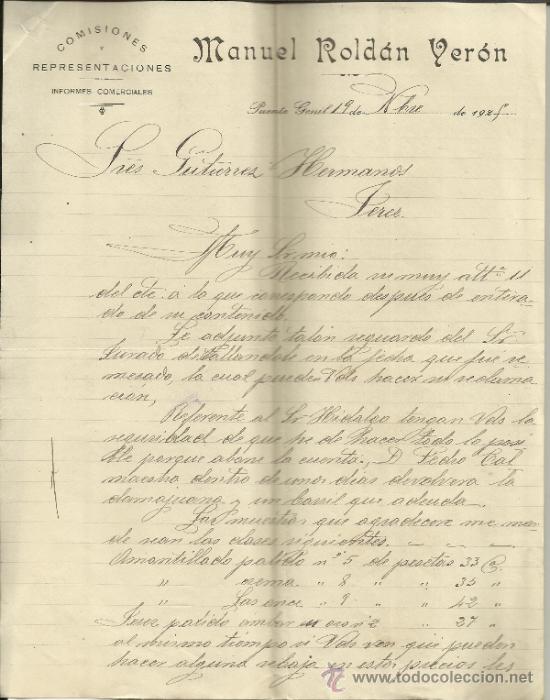 COMISIONES
Y
REPRESENTACIONES
INFORMES COMERCIALES
Manuel Roldán Verón
Puente Genil 19 de Nbre de 192
Sres Gutierrez Hermanos
Jerez
Muy Sr. mio:
Recibida su muy atta 11
del cte. á lo que correspondo después de entera-
do de su contenido.
Le adjunto talón resguardo del Sr
Jurado detallandole en la fecha que fue re-
mesado, la cual pueden Vds hacer su reclama
ción,
Referente al Sr Hidalgo tengan Vds la
seguridad de que he de hacer todo lo posi
ble porque abone la cuenta, D Pedro Cal
maestra dentro de unos dias devolvera la
damajuana y un barril que adeuda.
Las muestras que agradecere me man-
de son las clases siguientes
Amontillado palido nº 5 de pesetas 33 @
" crema " 8 " " 35 "
" " 9 " " 42 "
Jerez palido ambar u oro nº 2 " 27 "
al mismo tiempo si Vds ven que pueden
hacer alguna rebaja en estos precios les
todocoleccion.net